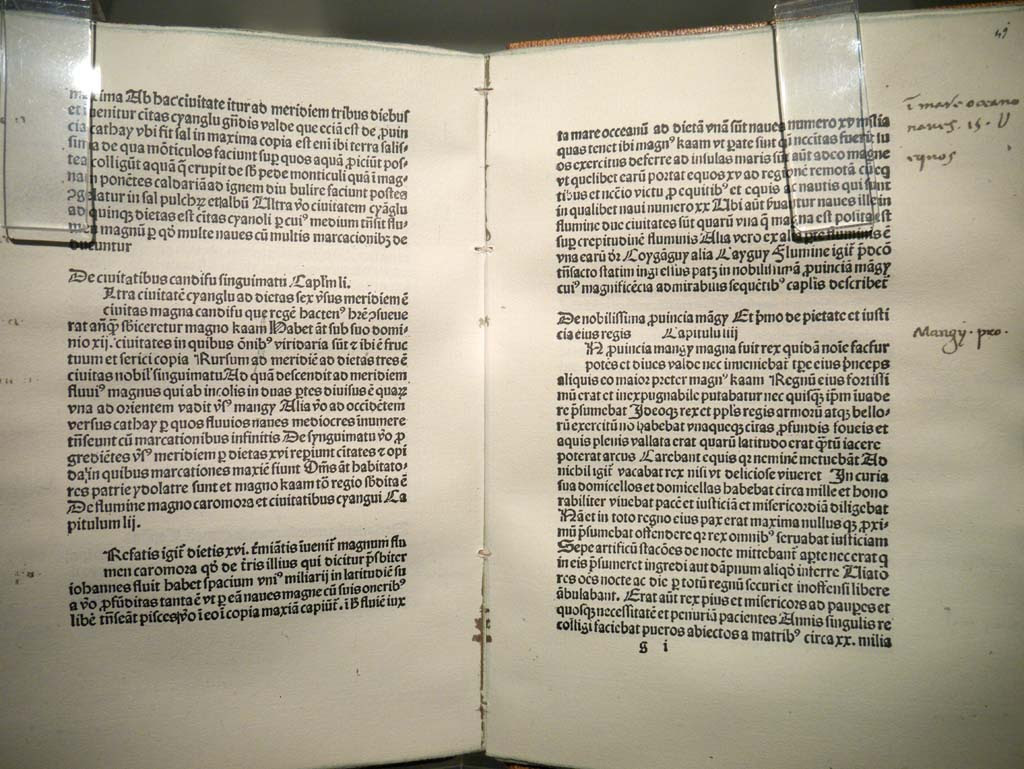 maxima Ab hac ciuitate itur ad meridiem tribus diebus
et inuenitur citas cyanglu gn̄dis valde que eciā est de ꝓuin
cia cathay vbi fit sal in maxima copia est eni ibi terra salis-
sima de qua mōticulos faciunt suꝑ quos aquā ꝓiciūt pos-
tea colligūt aquā q̄ erupit de sb̄ pede monticuli quā ī mag-
nam ponētes caldariā ad ignem diu bulire faciunt postea
ꝯgelatur in sal pulchꝝ et albū Ultra v̄o ciuitatem cyāglu
ad quinqꝫ dietas est citas cyanoli ꝑ cuiꝰ medium trāsit flu-
men magnū ꝑ qō multe naues cū multis marcacionibꝫ de
ducuntur
De ciuitatibus candifu singuimatu. Caplm li.
Ltra ciuitatē cyanglu ad dietas sex v̓sus meridiem ē
ciuitas magna candifu que regē hactenꝰ hr̄e ꝯsueue
rat anq̄ƺ sb̓iceretur magno kaam Habet āt sub suo domi-
nio xij. ciuitates in quibus ōnibꝰ viridaria sūt ⁊ ibi ē fruc
tuum et serici copia Rursum ad meridiē ad dietas tres ē
ciuitas nobil̓ singuimatu Ad quā descendit ad meridiem
fluuiꝰ magnus qui ab incolis in duas ꝑtes diuisus ē quaꝝ
vna ad orientem vadit v̓sꝰ mangy Alia v̓o ad occidētem
versus cathay ꝑ quos fluuios naues mediocres inumere
trāseunt cū marcationibus infinitis De synguimatu v̓o ꝓ
grediētes v̓sꝰ meridiem ꝑ dietas xvi reꝑiunt citates ⁊ opi
da, in quibus marcationes maxīe fiunt Om̄s āt habitato-
res patrie ydolatre sunt et magno kaam tō regio sb̓dita ē
De flumine magno caromora et ciuitatibus cyangui Ca
pitulum lij.
Pefatis igit̄ dietis xvi. t̄miātis īuenit̄ magnum flu
men caromora qō de t̄ris illius qui dicitur p̄sbiter
iohannes fluit habet spacium vniꝰ miliarij in latitudiē su
a v̓o ꝓfūditas tanta ē vt ꝑ eā naues magne cū suis oneribꝰ
libē trāseāt pisces v̓o ī eo ī copia maxiā capiūt̄. iƺ fluuiē iux
ta mare occeanū ad dietā vnā sūt naues numero xv milia
quas tenet ibi magnꝰ kaam vt ꝑate sunt qn̄ necc̄itas fuerit su
os exercitus deferre ad insulas maris sūt aūt adeo magne
vt quelibet earū portat equos xv ad regionē remotā cū eq
tibus et nēcīo victu ꝓ equitibꝰ et equis ac nautis qui sunt
in qualibet naui numero xx Ubi aūt ẜuātur naues ille in
flumine due ciuitates sūt quarū vna q̄ magna est posita est
suꝑ crepitudinē fluminis Alia vero ex alia ꝑte fluminis ē
vna earū dr̄ Coygāguy alia Cayguy Flumine igit̄ p̄dcō
trāsacto statim ingi ellius patꝫ in nobilissimā ꝓuincia māgy
cuiꝰ magnificēcia admirabilis sequētibꝰ caplis describet̄
De nobilissima ꝓuincia māgy Et p̄mo de pietate et iusti
cia eius regis Capitulu liij
N ꝓuincia mangy magna fuit rex quidā noīe facfur
potēs et diues valde nec inueniebat̄ tꝑe eius p̄nceps
aliquis eo maior preter magnꝰ kaam Regnū eius fortissi
mū erat et inexpugnabile putabatur nec quisqꝫ ip̄m iuade
re p̄sumebat Ideoqꝫ rex et pplꝰ regis armorū atqꝫ bello-
rū exercitū nō habebat vnaqueqꝫ citas ꝓfundis foueis et
aquis plenis vallata erat quarū latitudo erat q̄tū iacere
poterat arcus Carebant equis qꝛ neminē metuebāt Ad
nichil igit̄ vacabat rex nisi vt deliciose viueret In curia
sua domicellos et domicellas habebat circa mille et hono
rabiliter viuebat pacē et iusticiā et misericordiā diligebat
Nā et in toto regno eius pax erat maxima nullus qꝫ ꝓxi-
mū p̄sumebat offendere qꝛ rex omnibꝰ seruabat iusticiam
Sepe artificū stacōes de nocte mittebant̄ aꝑte nec erat q
in eis p̄sumeret ingredi aut dāpnum aliqō inferre Uiato
res oēs nocte ac die ꝑ totū regnū securi et inoffensi libere
ābulabant. Erat aūt rex pius et misericors ad paupes et
quosqꝫ necessitatē et penuriā pacientes Annis singulis re
colligi faciebat pueros abiectos a matribꝰ circa xx. milia
g i
49
ī mare oceano
naues. 15. U
equos
Mangy. pro.